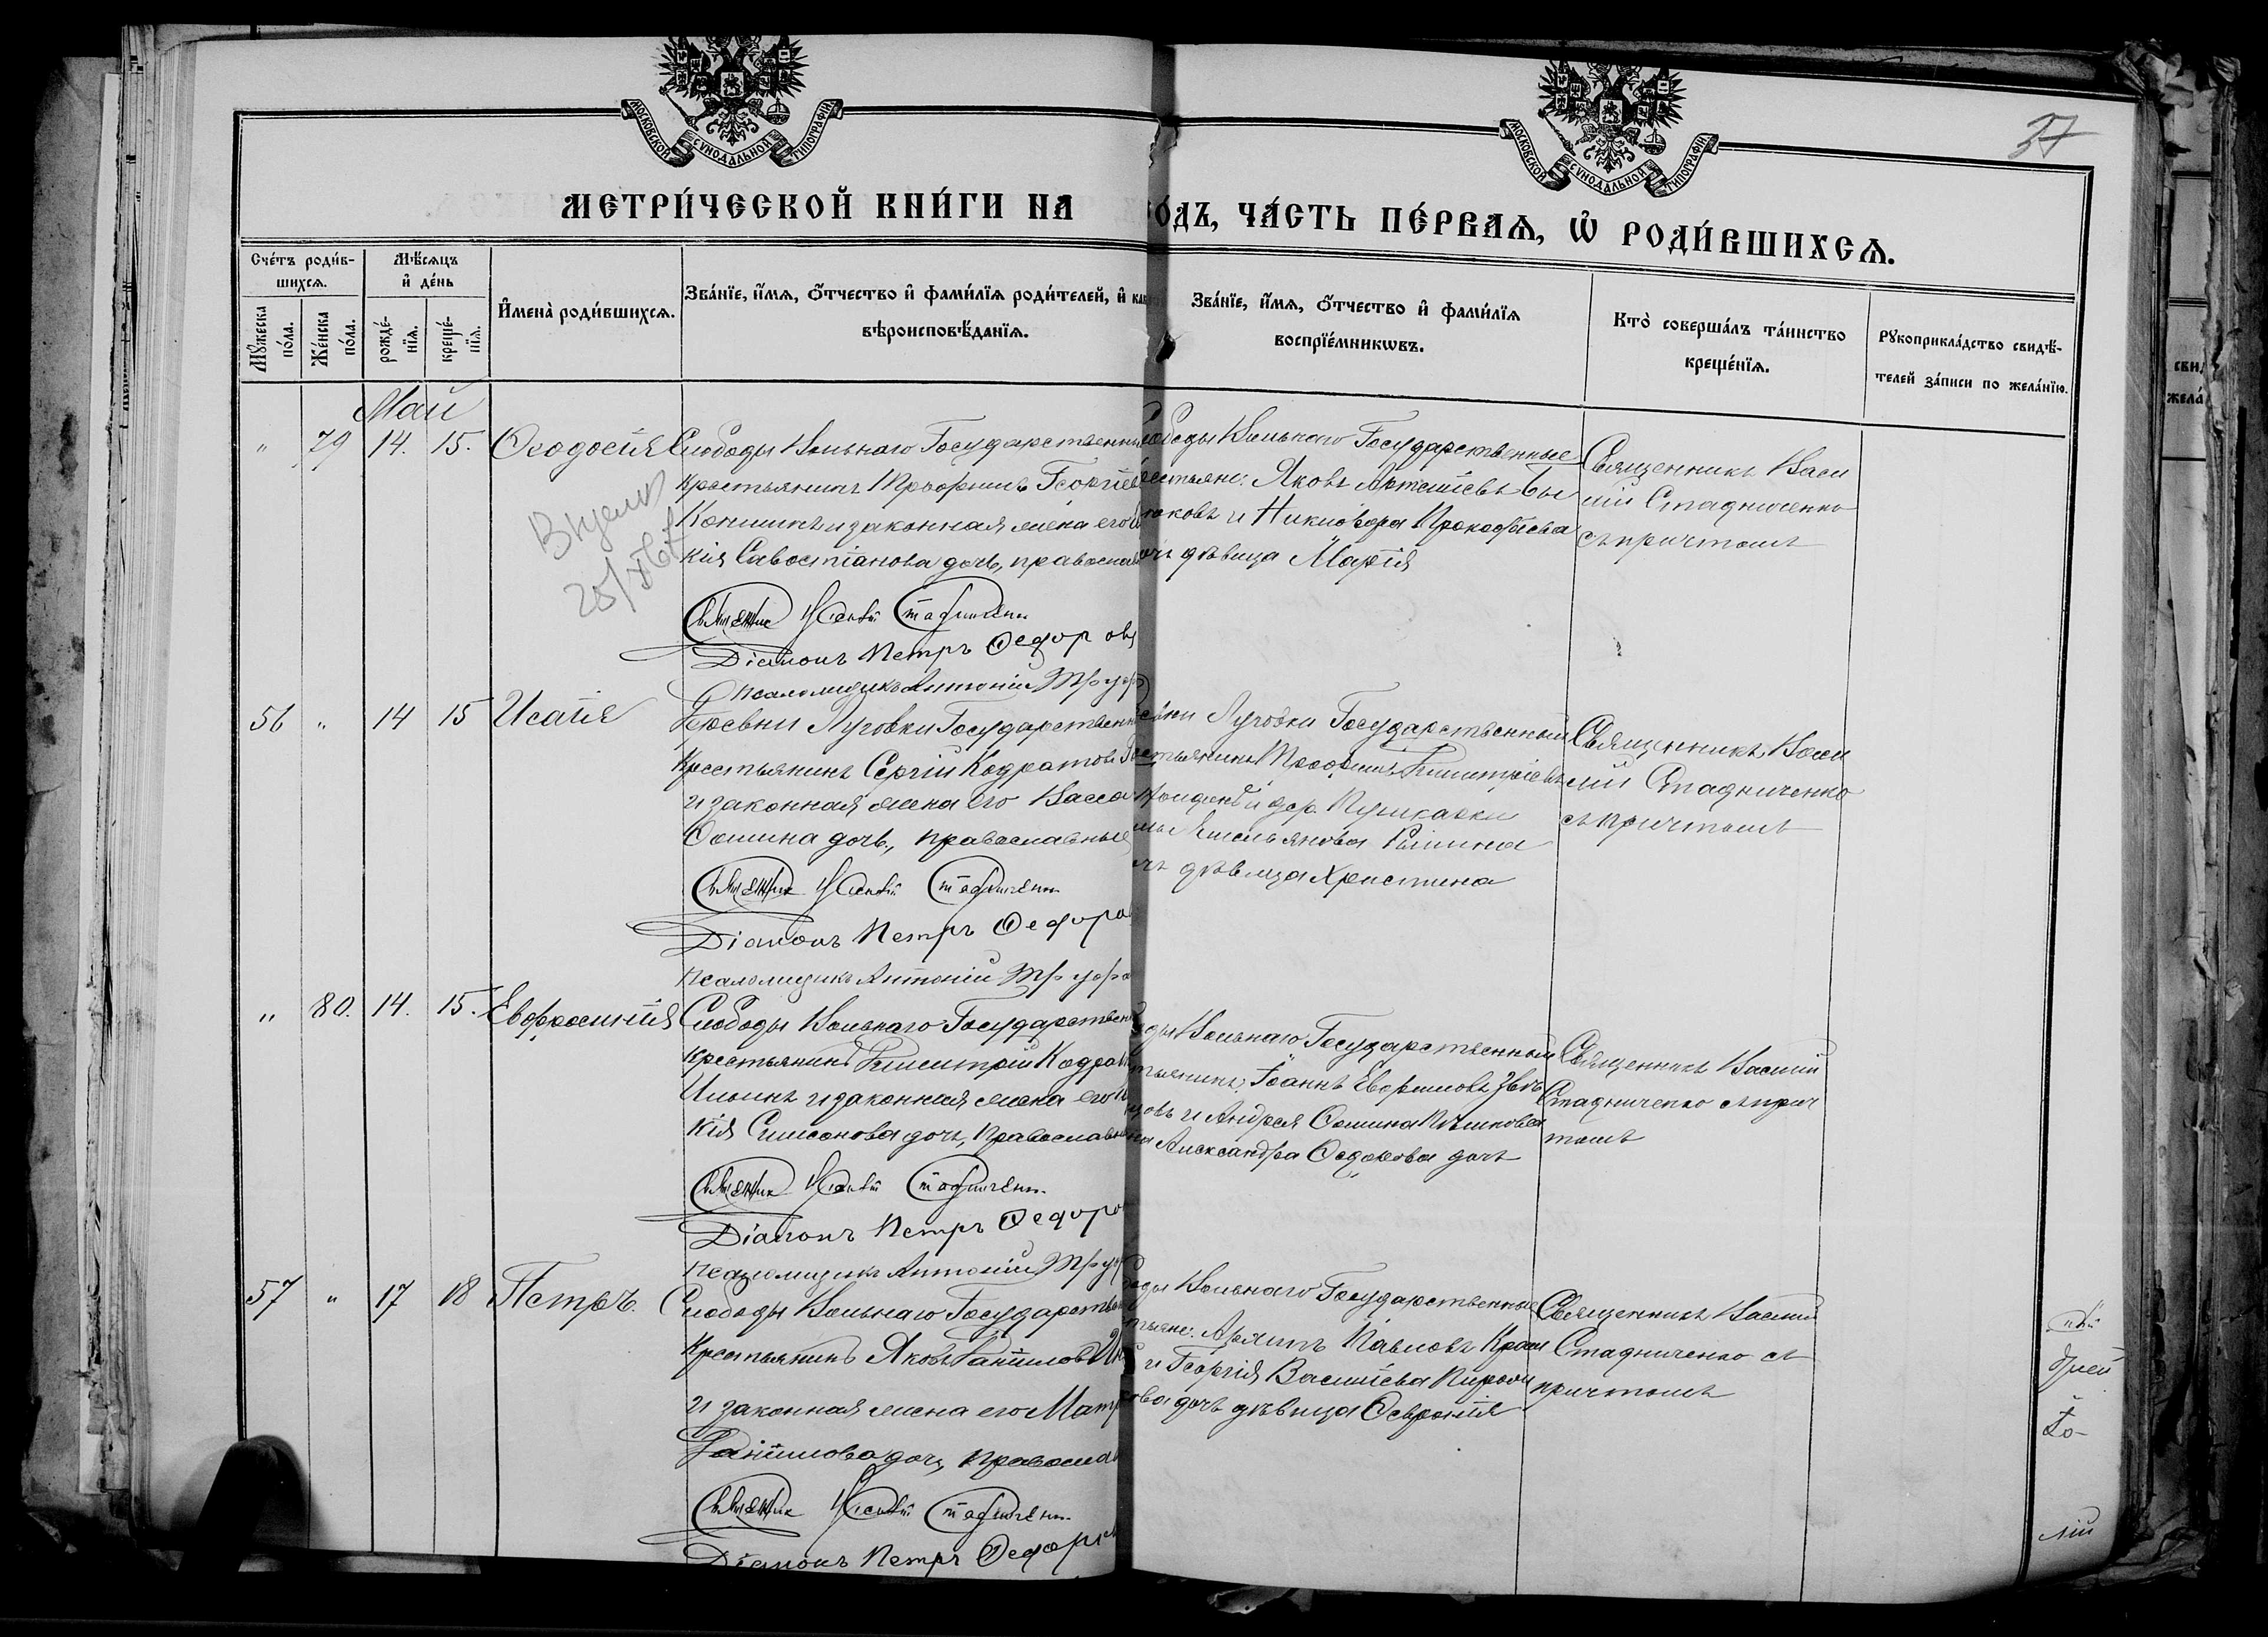 МОСКОВСКОЙ СУНОДАЛЬНОЙ ТИПОГРАФІИ
МОСКОВСКОЙ СУНОДАЛЬНОЙ ТИПОГРАФІИ
37
МЕТРИ́ЧЕСКОЙ КНИ́ГИ НА
ГО́ДЪ, ЧА́СТЬ ПЕ́РВАѦ, Ѡ҆ РОДИ́ВШИХСѦ.
Сче́тъ роди́в-
шихсѧ.
Мѹ́жеска по́ла.
Же́нска по́ла.
Мѣ́сѧцъ
и҆ де́нь
рожде́-
нїѧ.
креще́-
нїѧ.
И҆мена̀ роди́вшихсѧ.
Зва́нїе, и҆́мѧ, ѻ҆́тчество и҆ фами́лїѧ роди́телей, и҆ как
вѣроисповѣ́данїѧ.
Зва́нїе, и҆́мѧ, ѻ҆́тчество и҆ фами́лїѧ
воспрїе́мникѡвъ.
Кто̀ соверша́лъ та́инство
креще́нїѧ.
Рѹкоприкла́дство свидѣ́-
телей за́писи по жела́нїю.
Май
" 79 14. 15. Ѳеодосія
Слободы Вольнаго Государственны
крестьянинъ Трофимъ Георгіев
Коншинъ и законная жена его
кія Савостіанова дочь, правосла
Священник Василій Стадничен
Діаконъ Петръ Ѳедоровъ
Псаломщикъ Антоній Труф
слободы Вольнаго Государственные
крестьяне: Яковъ Артеміевъ Бы
ковъ и Никифора Прокофьева
дочь дѣвица Марія
Священникъ Васи
лій Стадниченко
съ причтомъ
56 " 14 15 Исаія
Деревни Луговки Государственны
крестьянинъ Сергій Кодратов
и законная жена его Васса
Ѳомина дочь, православные
Священник Василій Стадничен
Діаконъ Петръ Ѳедоро
Псаломщикъ Антоній Труфа
Луговки Государственный
крестьянинъ Трофимъ Димитріевъ
и дер. Пушкарки
Емельянова
дочь дѣвица Христина
Священникъ Васи
лій Стадниченко
съ причтомъ
" 80. 14. 15. Евфросинія
Слободы Вольнаго Государствен
крестьянинъ Димитрій Кодратов
Ильинъ и законная жена его
кія Симеонова дочь, Православны
Священник Василій Стадничен
Діаконъ Петръ Ѳедоро
Псаломщикъ Антоній Труф
Вольнаго Государственный
крестьянинъ, Іоаннъ Евфимовъ
и Андрея Ѳомина
Александра Ѳедорова дочь
Священникъ Василій
Стадниченко съ прич
томъ
57 " 17 18 Петръ.
Слободы Вольнаго Государствен
крестьянинъ Яковъ Даніиловъ
и законная жена его Матр
Даніилова дочь, Правосла
Священник Василій Стадничен
Діаконъ Петръ Ѳедоро
Вольнаго Государственные
крестьяне: Павловъ
и Георгія Васильева
дочь дѣвица Ѳевронія
Священникъ Василій
Стадниченко съ
причтомъ